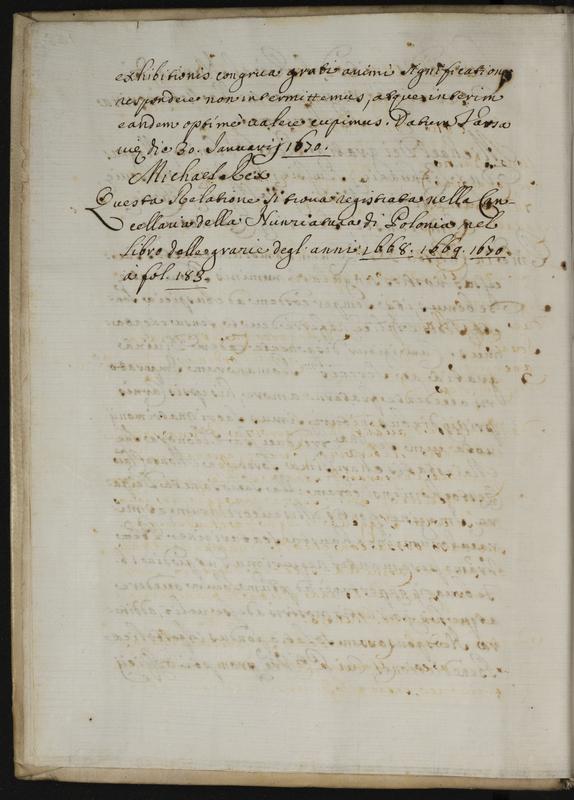 exhibitionis congrua grati animi significatione
respondere non intermittemus, atque interim
eandem optimè valere cupimus. Datum Varsa
viæ die 30. Januarij 1670.
Michael Rex
Questa Relatione si trova registrata nella Can-
cellaria della Nunziatura di Polonia nel
Libro delle grazie degl' anni 1668. 1669. 1670.
à fol. 183.